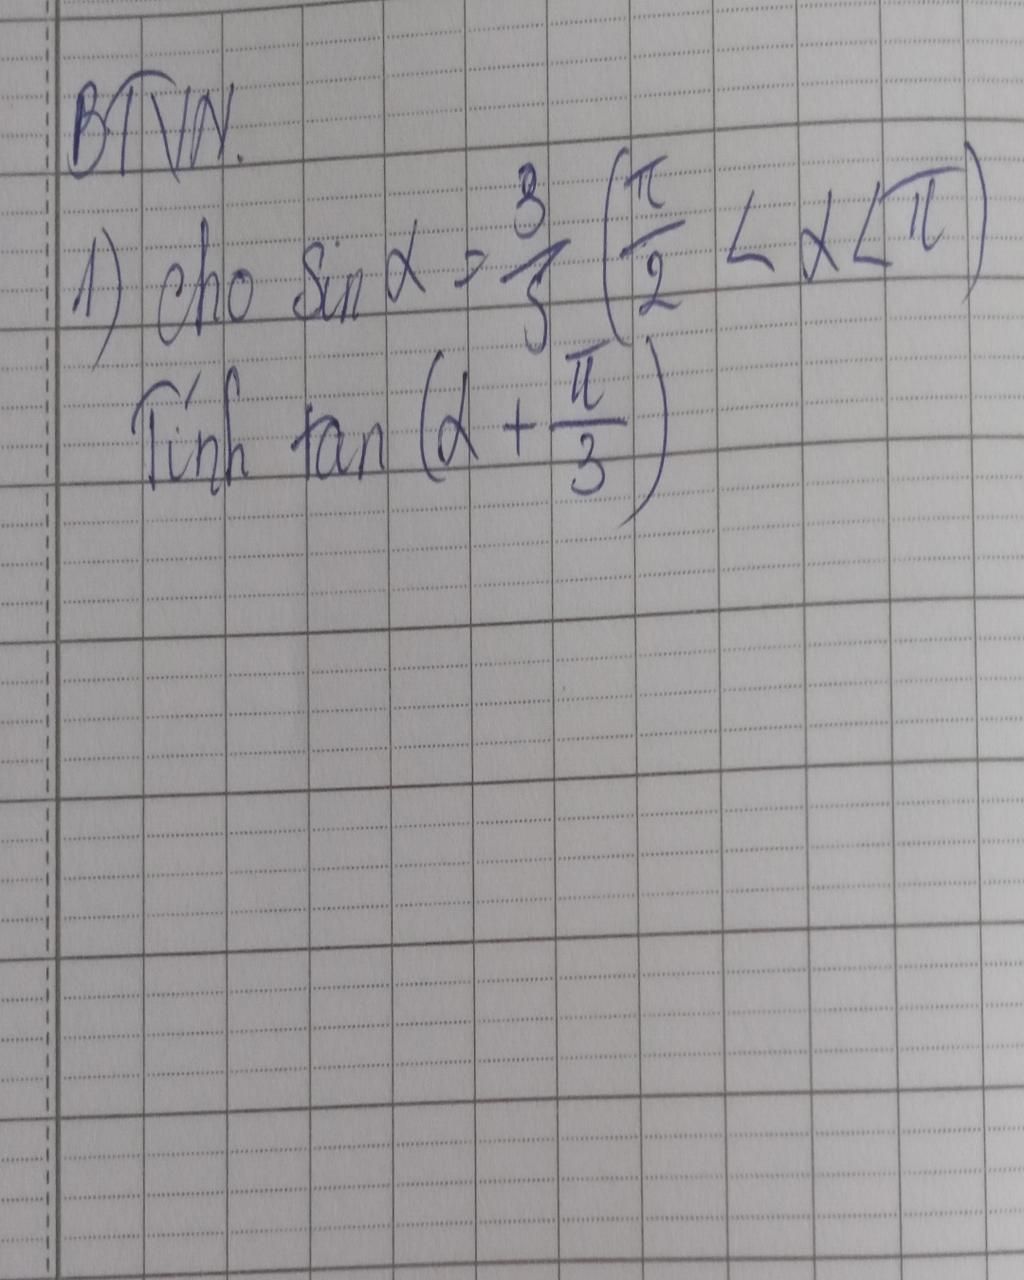 BTVN.
1) cho sin α = 3/5 (π/2 < α < π)
Tính tan (α + π/3)